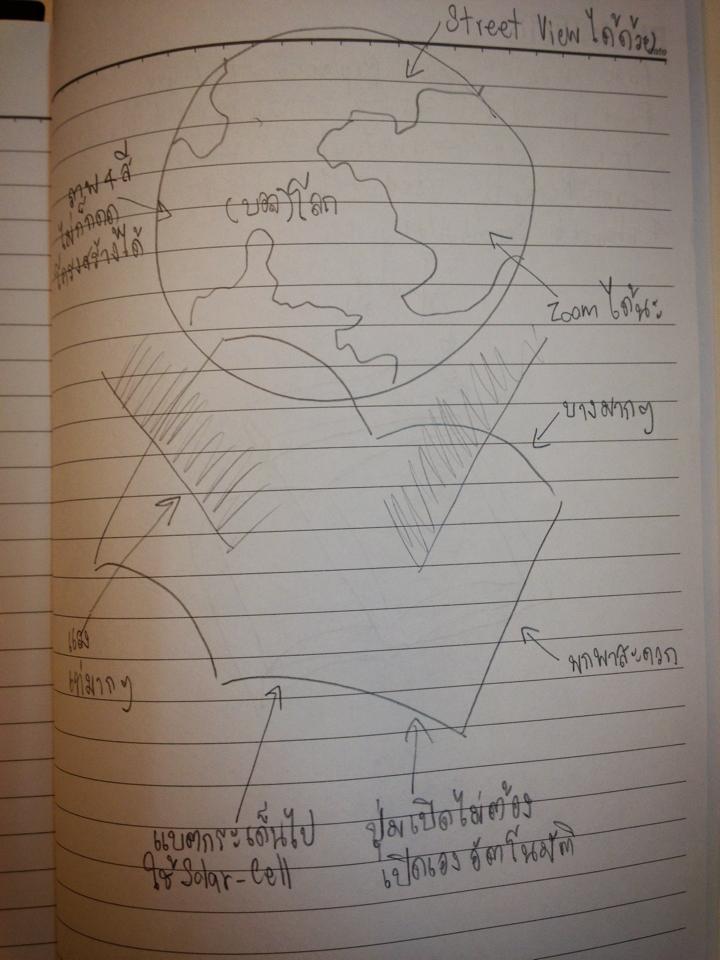 Street View ได้ด้วย
ภาพ 4 สี
โครงสร้างได้
(บอล)โลก
Zoom ได้นะ
บางมากๆ
แสง
เท่มากๆ
พกพาสะดวก
แบตกระเด็นไป
ใช้ Solar-Cell
ปุ่มเปิดไม่ต้อง
เปิดเอง อัตโนมัติ